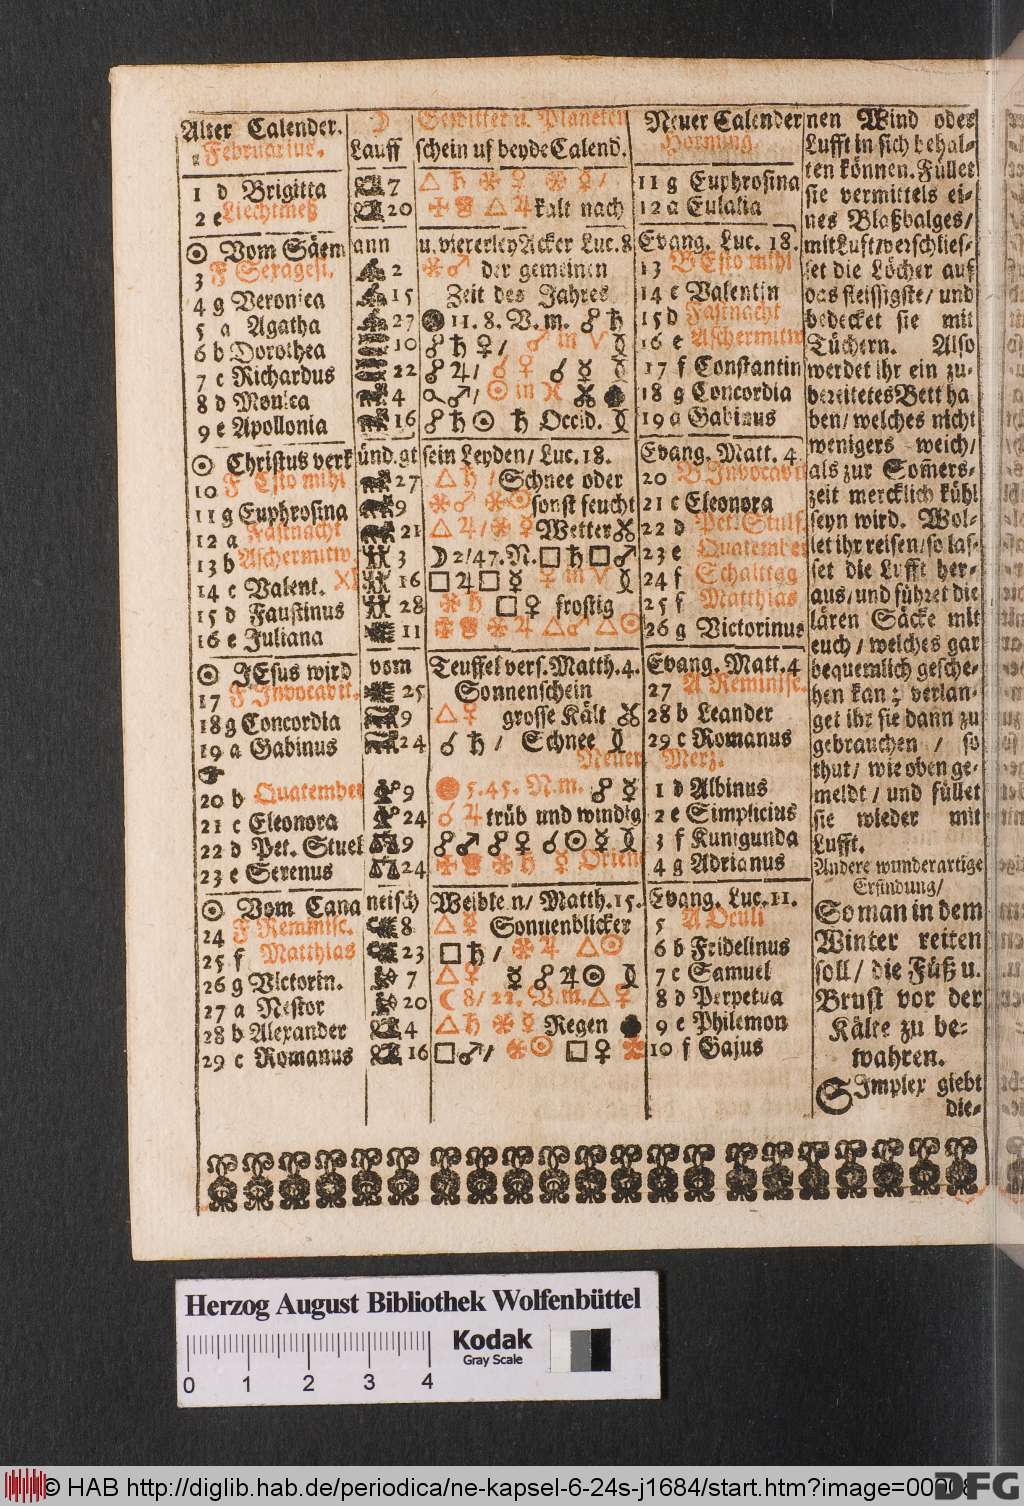 Alter Calender.
Februarius.
1 d Brigitta
2 e Liechtmeß
☉ Vom Säem
3 F Sexagesi.
4 g Veronica
5 a Agatha
6 b Dorothea
7 c Richardus
8 d Monica
9 e Apollonia
☉ Christus verk
10 F Esto mihi
11 g Euphrosina
12 a Fastnacht
13 b Aschermitw.
14 c Valent.
15 d Faustinus
16 e Juliana
☉ JEsus wird
17 F Invocavit.
18 g Concordia
19 a Gabinus
20 b Quatember
21 c Eleonora
22 d Pet. Stuel
23 e Serenus
☉ Vom Cana
24 F Reminisc.
25 f Matthias
26 g Victorin.
27 a Nestor
28 b Alexander
29 c Romanus
☽
Lauff
7
20
ann
2
15
27
10
22
4
16
ünd.gt
27
9
21
3
16
28
11
vom
25
9
24
9
24
9
24
neisch
8
23
7
20
4
16
Gewitter u. Planeten
schein uf beyde Calend.
△ ♄ ✱ ♀ ✱ ☿ /
△ ♃ kalt nach
u. viererley Acker Luc. 8
✱ ♂ der gemeinen
Zeit des Jahres
11. 8. V. m. ☍ ♄
☍ ♄ ♀ / ♂ in V
☍ ♃ / ☌ ♀ ☌ ☿
♂ / ☉ in ♓
☍ ♄ ☉ ♄ Occid.
sein Leyden / Luc. 18.
△ ♄ / Schnee oder
✱ ♂ ✱ ☉ sonst feucht
△ ♃ / ✱ ☿ Wetter
☽ 2/47. N. □ ♄ □ ♂
□ ♃ □ ☿ ♀ in V
✱ ♄ □ ♀ frostig
✱ ♃ △ ♂ △ ☉
Teuffel vers. Matth. 4.
Sonnenschein
△ ☿ grosse Kält
☌ ♄ / Schnee
Neuer Merz.
5. 45. N. m. ☍ ☿
☌ ♃ trüb und windig
☍ ♂ ☍ ♀ ☌ ☉ ☿
✱ ♄ ☿ Orient
Weiblein / Matth. 15.
△ ☿ Sonnenblicker
□ ♄ / ✱ ♃ △ ☉
△ ♀ ☿ ☍ ♃ ☉
☾ 8/22. V. m. △ ☿
△ ♄ ✱ ☿ Regen
□ ♂ / ✱ ☉ □ ♀ ✱
Neuer Calender
Hornung.
11 g Euphrosina
12 a Eulalia
Evang. Luc. 18.
13 B Esto mihi
14 c Valentin
15 d Fastnacht
16 e Aschermitw
17 f Constantin
18 g Concordia
19 a Gabinus
Evang. Matt. 4.
20 B Invocavit
21 c Eleonora
22 d Pet. Stulf.
23 e Quatember
24 f Schalttag
25 f Matthias
26 g Victorinus
Evang. Matt. 4
27 A Reminisc.
28 b Leander
29 c Romanus
1 d Albinus
2 e Simplicius
3 f Kunigunda
4 g Adrianus
Evang. Luc. 11.
5 A Oculi
6 b Fridelinus
7 c Samuel
8 d Perpetua
9 e Philemon
10 f Gajus
nen Wind oder
Lufft in sich behal-
ten können. Füllet
sie vermittels ei-
nes Blaßbalges/
mit Luft/verschlies-
set die Löcher auf
das fleissigste/ und
bedecket sie mit
Tüchern. Also
werdet ihr ein zu-
bereitetes Bett ha
ben/ welches nicht
wenigers weich/
als zur Som̃ers-
zeit mercklich kühl
seyn wird. Wol-
let ihr reisen/so las-
set die Lufft her-
aus/und führet die
lären Säcke mit
euch/ welches gar
bequemlich gesche-
hen kan; verlan-
get ihr sie dann zu
gebrauchen / so
thut/ wie oben ge-
meldt/ und füllet
sie wieder mit
Lufft.
Andere wunderartige
Erfindung/
So man in dem
Winter reiten
soll/ die Füß u.
Brust vor der
Kälte zu be-
wahren.
SImplex giebt
die-
Herzog August Bibliothek Wolfenbüttel
Kodak
Gray Scale
0 1 2 3 4
© HAB http://diglib.hab.de/periodica/ne-kapsel-6-24s-j1684/start.htm?image=00008
DFG